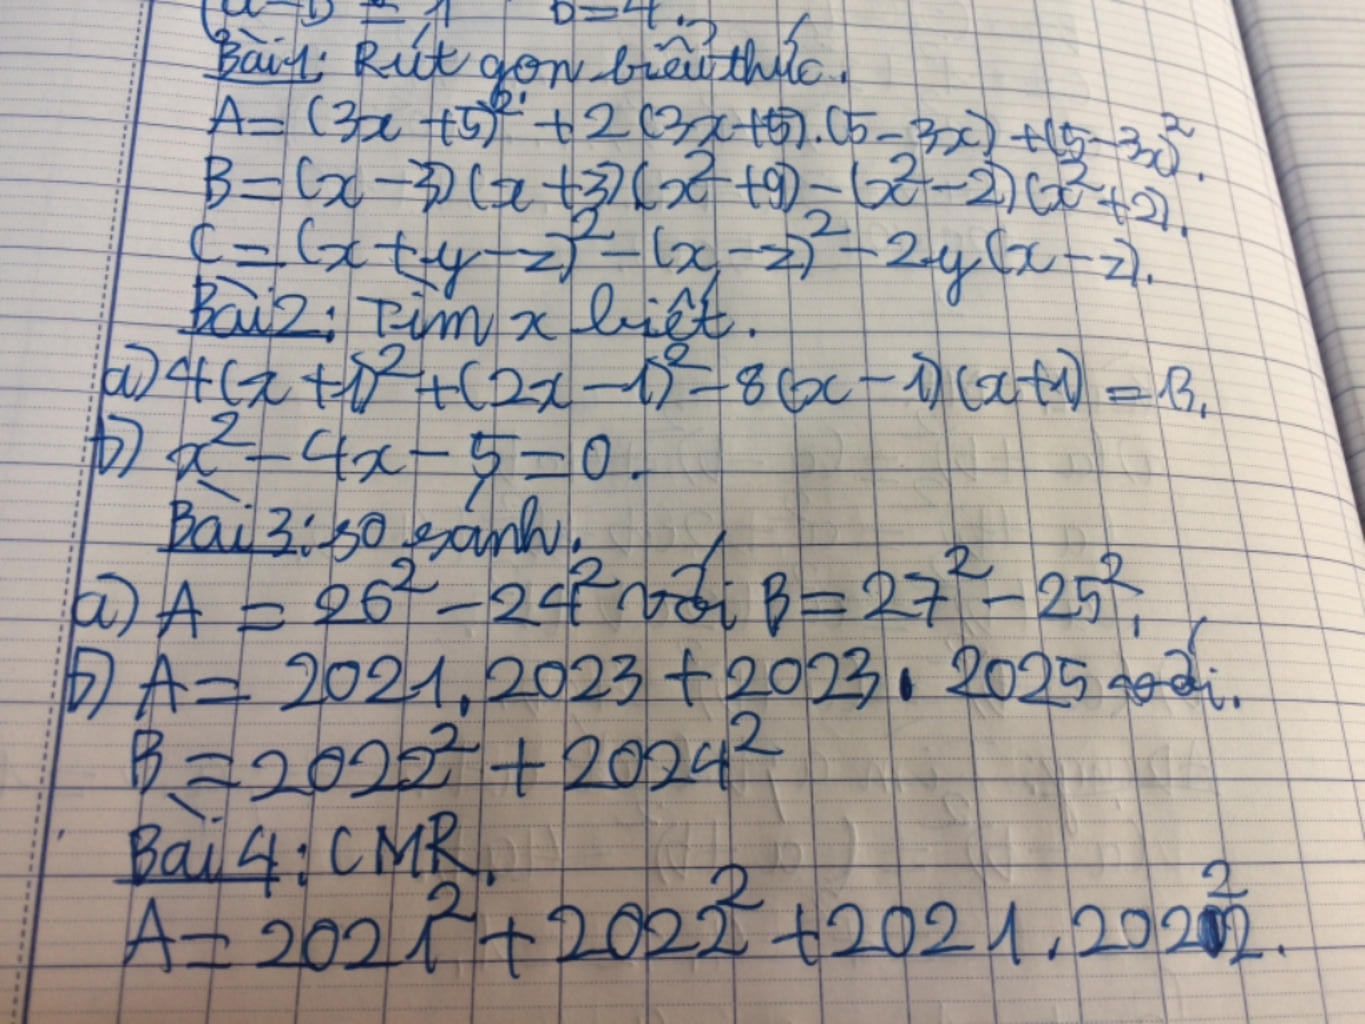 (a-b = 1 b=4.
Bài 1: Rút gọn biểu thức.
A = (3x + 5)² + 2(3x+5).(5-3x) + (5-3x)².
B = (x - 3)(x + 3)(x² + 9) - (x² - 2)(x² + 2).
C = (x + y - z)² - (x - z)² - 2y(x - z).
Bài 2: Tìm x biết.
a) 4(x + 1)² + (2x - 1)² - 8(x - 1)(x + 1) = 13.
b) x² - 4x - 5 = 0.
Bài 3: so sánh.
a) A = 26² - 24² với B = 27² - 25².
b) A = 2021.2023 + 2023.2025 với.
B = 2022² + 2024²
Bài 4: CMR.
A = 2021² + 2022² + 2021.2022².